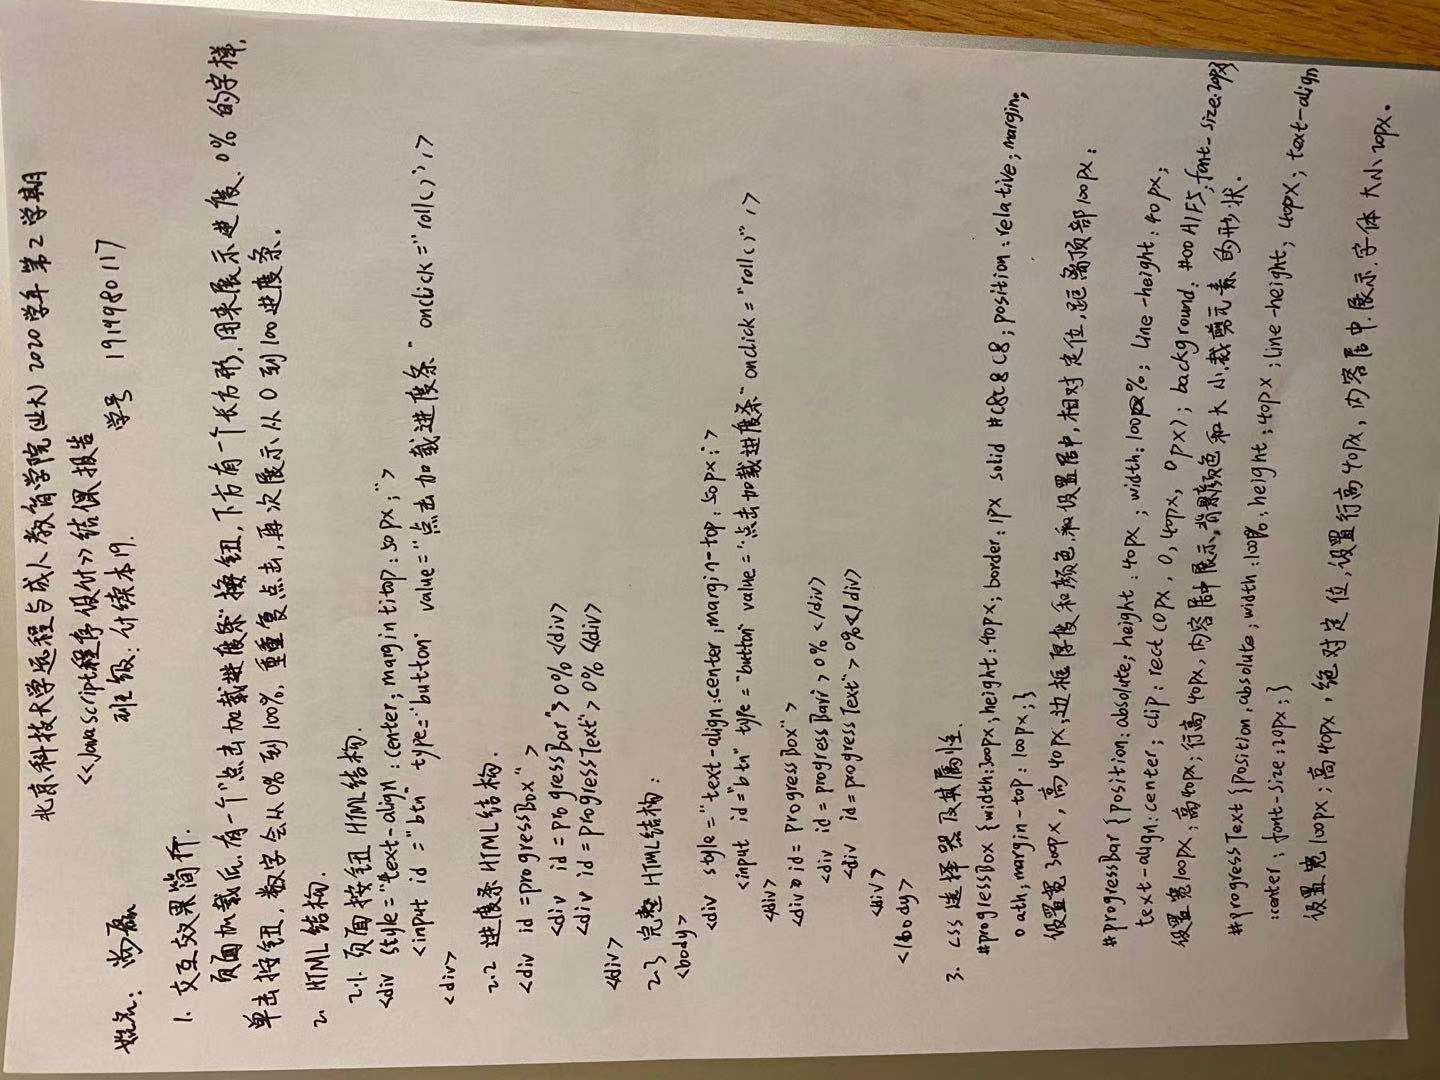 北京科技大学远程与成人教育学院(业大) 2020学年第2学期
《Javascript程序设计》结课报告
姓名: 班级: 计续本19. 学号 1919980117
1. 交互效果简介.
页面加载后,有一个"点击加载进度条"按钮,下方有一个长方形,用来展示进度.0%的字样,
单击按钮,数字会从0%到100%,重复点击,再次展示从0到100进度条.
2. HTML结构.
2.1. 页面按钮HTML结构.
<div style="text-align:center; margintitop:50px;">
<input id="btn" type="button" value="点击加载进度条" onclick="roll()",>
<div>
2.2 进度条HTML结构.
<div id=progressBox">
<div id=progressBar">0%</div>
<div id=progressText">0%</div>
</div>
2.3 完整HTML结构:
<body>
<div style="text-align:center;margin-top:50px;>
<input id="btn" type="button" value="点击加载进度条" onclick="roll()",>
</div>
<div id=progressBox">
<div id=progressBar>0%</div>
<div id=progressText>0%</div>
<div>
</body>
3. css选择器及其属性.
#progressBox{width:300px;height:40px;border:1px solid #C8C8C8;position:relative;margin:
0 ;margin-top:100px;}
设置宽300px,高40px,边框厚度和颜色和设置居中,相对定位,距离顶部100px:
#progressBar{position:absolute;height:40px;width:100%;line-height:40px;
text-align:center;clip:rect(0px,0,40px,0px);background:#00A1F5;font-size:20px}
设置宽100px;高40px;行高40px,内容居中展示,背景颜色和大小,裁剪元素的形状.
#progressText{position,absolute;width:100%;height:40px;line-height,40px;text-align
:center;font-size:20px;}
设置宽100px;高40px,绝对定位,设置行高40px,内容居中.展示.字体大小20px.